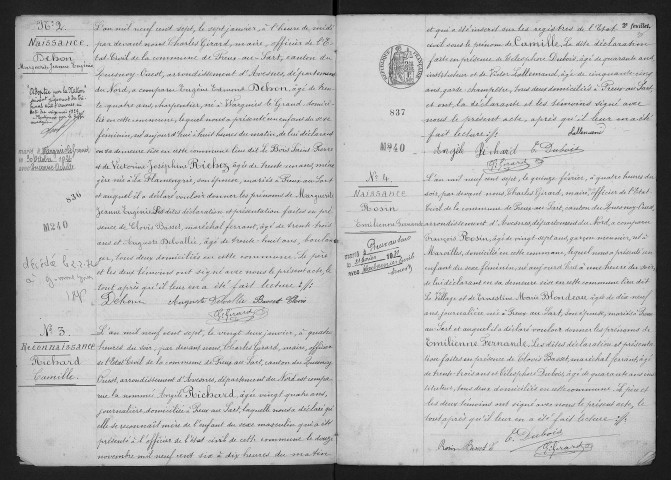 N° 2
Naissance
Dehon
Marguerite Jeanne Eugénie
"Adoptée par la Nation"
836
M240
N° 3.
Reconnaissance
Richard
Camille.
L'an mil neuf cent sept, le sept janvier, à l'heure de midi
par devant nous Charles Girard, maire, officier de l'É-
tat Civil de la commune de Preux-au-Sart, canton du
Quesnoy-Ouest, arrondissement d'Avesnes, département
du Nord, a comparu Eugène Edmond Dehon, âgé de tren-
te quatre ans, charpentier, né à Wargnies-le-Grand, domi-
cilié en cette commune, lequel nous a présenté un enfant du sexe
féminin, est aujourd'hui à huit heures du matin, lui déclarant
en sa demeure sise en cette commune lieu dit Le Bois Saint Pierre
et de Victorine Joséphine Richez, âgée de trente un ans, ména-
gère née à La Flamengrie, son épouse, mariés à Preux-au-Sart
et auquel il a déclaré vouloir donner les prénoms de Marguerite
Jeanne Eugénie. Les dites déclaration et présentation faites en pré-
sence de Clovis Basset, maréchal ferrant, âgé de trente trois
ans et Auguste Delvallée, âgé de trente-huit ans, boulan-
ger, tous deux domiciliés en cette commune. Le père
et les deux témoins ont signé avec nous le présent acte, le
tout après qu'il leur en a été fait lecture ./.
Dehon Auguste Delvallée Basset Clovis
C. Girard
L'an mil neuf cent sept, le vingt deux janvier, à quatre
heures du soir, par devant nous, Charles Girard, maire, officier
de l'État Civil de la commune de Preux-au-Sart, canton du Quesnoy-
Ouest, arrondissement d'Avesnes, département du Nord est compa-
rue la nommée Angèle Richard, âgée de vingt quatre ans,
journalière domiciliée à Preux-au-Sart, laquelle nous a déclaré qu'
elle se reconnaît mère de l'enfant du sexe masculin qui a été
présenté à l'officier de l'état civil de cette commune le douze
novembre mil neuf cent six à dix heures du matin
2e feuillet.
837
M240
N° 4.
Naissance
Rosin
Emilienne Fernande
et qui a été inscrit sur les registres de l'État
civil sous le prénom de Camille. La dite déclaration
faite en présence de Télesphore Dubois, âgé de quarante ans
instituteur et de Victor Lallemand, âgé de cinquante cinq
ans, garde champêtre, tous deux domiciliés à Preux-au-Sart,
et ont, la déclarante et les témoins signé avec
nous le présent acte, après qu'il leur en a été
fait lecture ./.
Lallemand
Angèle Richard T. Dubois
C. Girard
L'an mil neuf cent sept, le quinze février, à quatre heures du
soir, par devant nous Charles Girard, maire, officier de l'État
Civil de la commune de Preux-au-Sart, canton du Quesnoy-Ouest
arrondissement d'Avesnes, département du Nord, a comparu
François Rosin, âgé de vingt sept ans, garçon brasseur, né à
Maroilles, domicilié en cette commune, lequel nous a présenté un
enfant du sexe féminin, né aujourd'hui à une heure du soir,
de lui déclarant en sa demeure sise en cette commune lieu dit
Le Village et de Ernestine Marie Blondeau, âgée de dix neuf
ans, journalière née à Preux-au-Sart, son épouse, mariés à Preux-au-
Sart et auquel il a déclaré vouloir donner les prénoms de
Emilienne Fernande. Les dites déclaration et présen-
tation faites en présence de Clovis Basset, maréchal ferrant, âgé de
trente-trois ans et Télesphore Dubois, âgé de quarante ans ins-
tituteur, tous deux domiciliés en cette commune. Le père et
les deux témoins ont signé avec nous le présent acte, le
tout après qu'il leur en a été fait lecture ./.
T. Dubois
Rosin Basset C
C. Girard